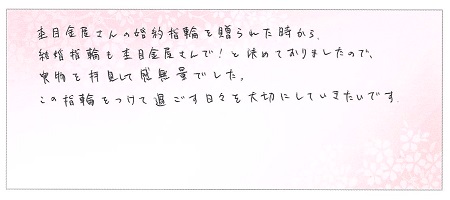 杢目金屋さんの婚約指輪を贈られた時から、
結婚指輪も杢目金屋さんで！と決めておりましたので、
実物を拝見して感無量でした。
この指輪をつけて過ごす日々を大切にしていきたいです。